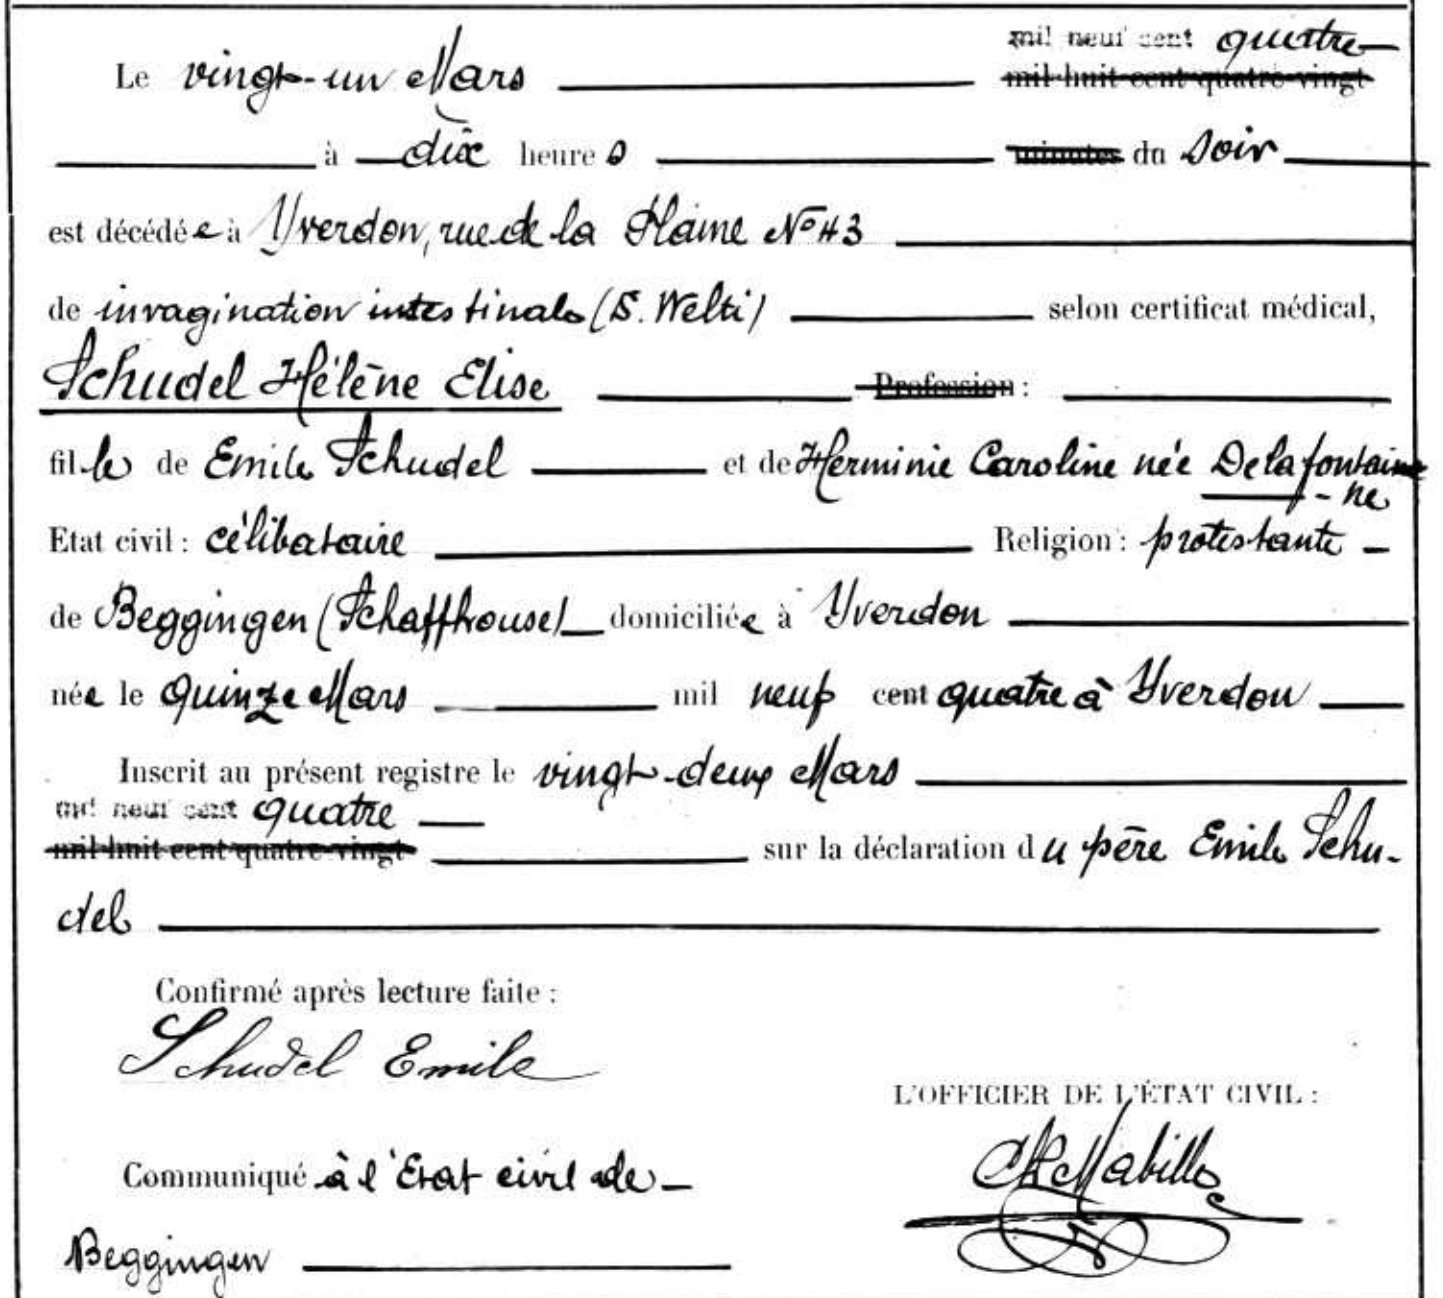 mil neuf cent quatre
Le vingt-un Mars mil huit cent quatre-vingt
à dix heures minutes du soir
est décédée à Yverdon, rue de la Plaine No 43
de invagination intestinale (S. Welti) selon certificat médical,
Schudel Hélène Elise Profession :
fille de Emile Schudel et de Herminie Caroline née Delafontaine
- ne
Etat civil : célibataire Religion : protestante
de Beggingen (Schaffhouse) domiciliée à Yverdon
née le quinze Mars mil neuf cent quatre à Yverdon
Inscrit au présent registre le vingt-deux Mars
mil neuf cent quatre
mil huit cent quatre-vingt sur la déclaration du père Emile Schu-
del
Confirmé après lecture faite :
Schudel Emile
L'OFFICIER DE L'ÉTAT CIVIL :
Communiqué à l'Etat civil de
Beggingen